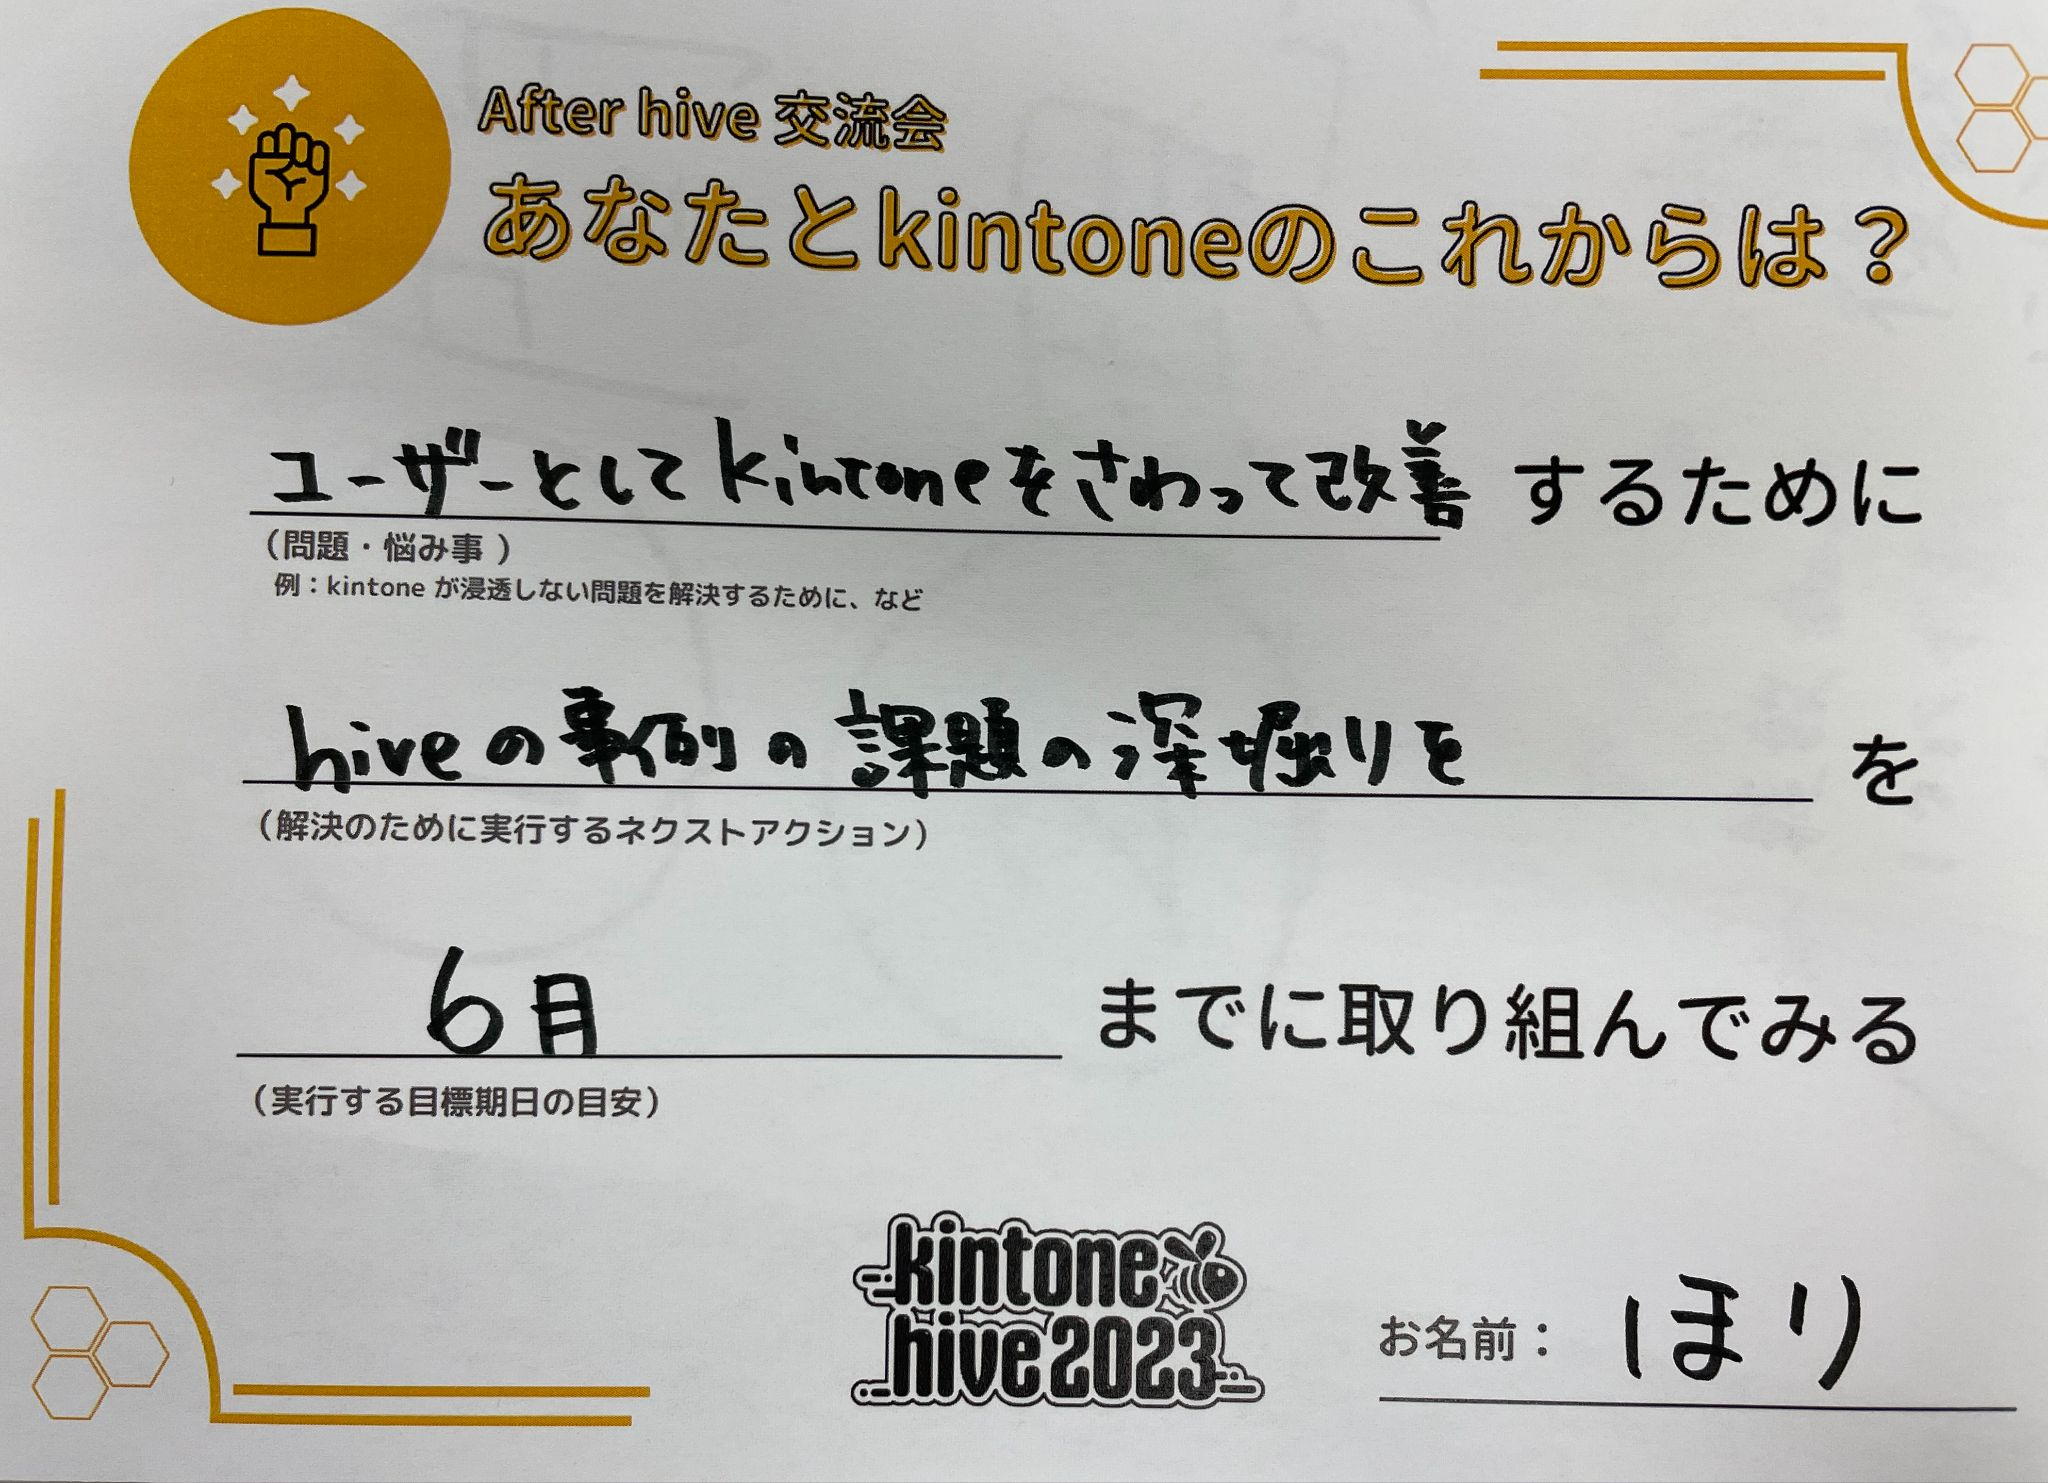 After hive 交流会
あなたとkintoneのこれからは？
ユーザーとしてkintoneをさわって改善 するために
（問題・悩み事 ）
例：kintone が浸透しない問題を解決するために、など
hiveの事例の課題の深掘りを を
（解決のために実行するネクストアクション）
6月 までに取り組んでみる
（実行する目標期日の目安）
kintone
hive 2023
お名前： ほり